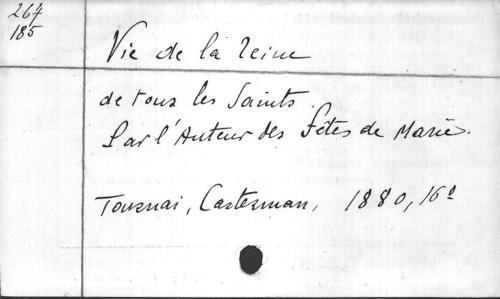 264
185
Vie de la Reine
de tous les Saints.
Par l'Auteur des Fêtes de Marie.
Tournai, Casterman, 1880, 16º